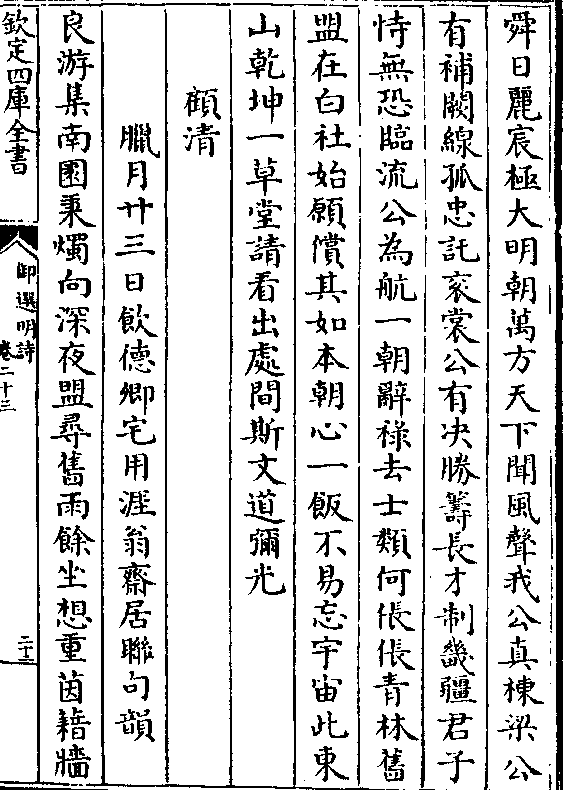 舜日麗宸極大明朝萬方天下聞風聲我公真棟梁公
有補闕線孤忠託衮裳公有决勝籌長才制畿疆君子
恃無恐臨流公為航一朝辭祿去士類何倀倀青林舊
盟在白社始願償其如本朝心一飯不易忘宇宙此東
山乾坤一草堂請看出處間斯文道彌光
顧清
臘月廿三日飲德卿宅用涯翁齋居聯句韻
良游集南園秉燭向深夜盟尋舊雨餘坐想重茵藉牆
欽定四庫全書
御選明詩
卷二十三
二十二